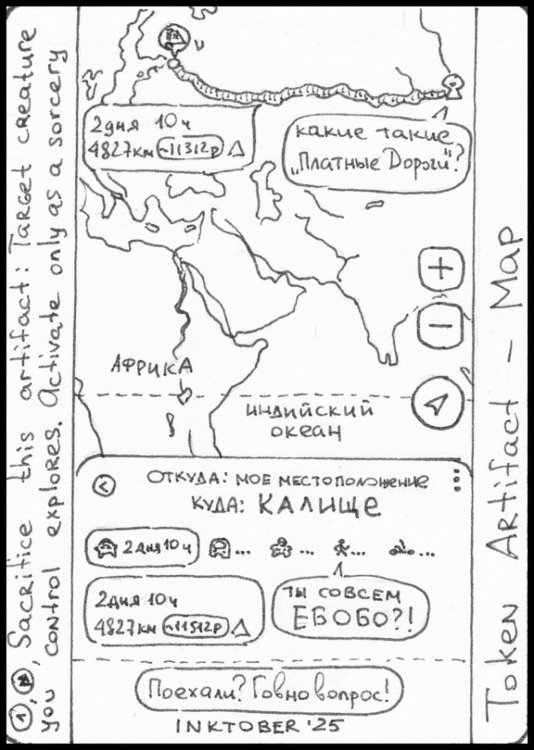 ①, Sacrifice this artifact: Target creature
you control explores. Activate only as a sorcery
2дня 10ч
4827км ~11312р
какие такие
„Платные Дороги"?
+
−
АФРИКА
ИНДИЙСКИЙ
океан
ОТКУДА: МОЕ МЕСТОПОЛОЖЕНИЕ
КУДА: КАЛИЩЕ
2дня10ч
...
...
...
...
2дня 10ч
4827км ~11512р
ТЫ СОВСЕМ
ЕБОБО?!
Поехали? Говно вопрос!
INKTOBER '25
Token Artifact - Map